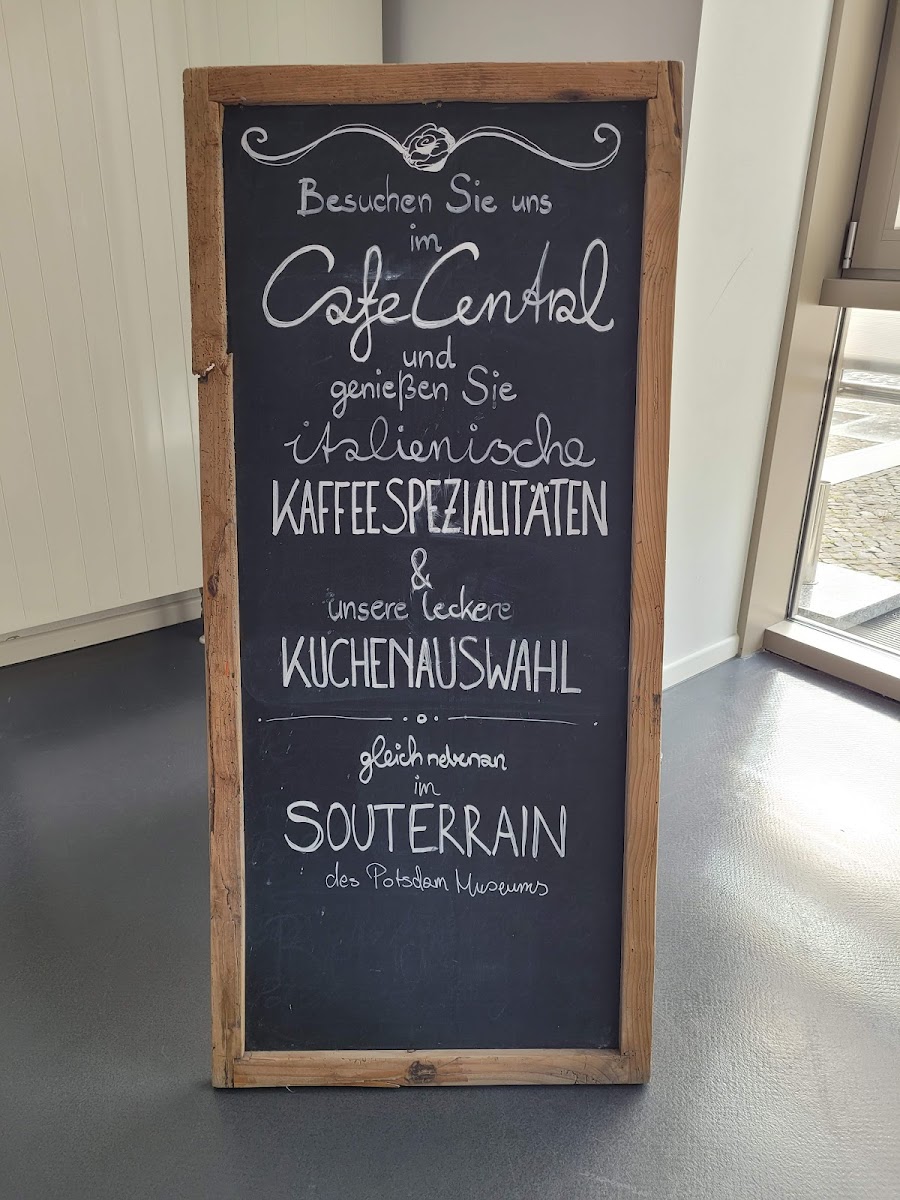 Besuchen Sie uns
im
Cafe Central
und
genießen Sie
italienische
KAFFEESPEZIALITÄTEN
&
unsere leckere
KUCHENAUSWAHL
gleich nebenan
im
SOUTERRAIN
des Potsdam Museums